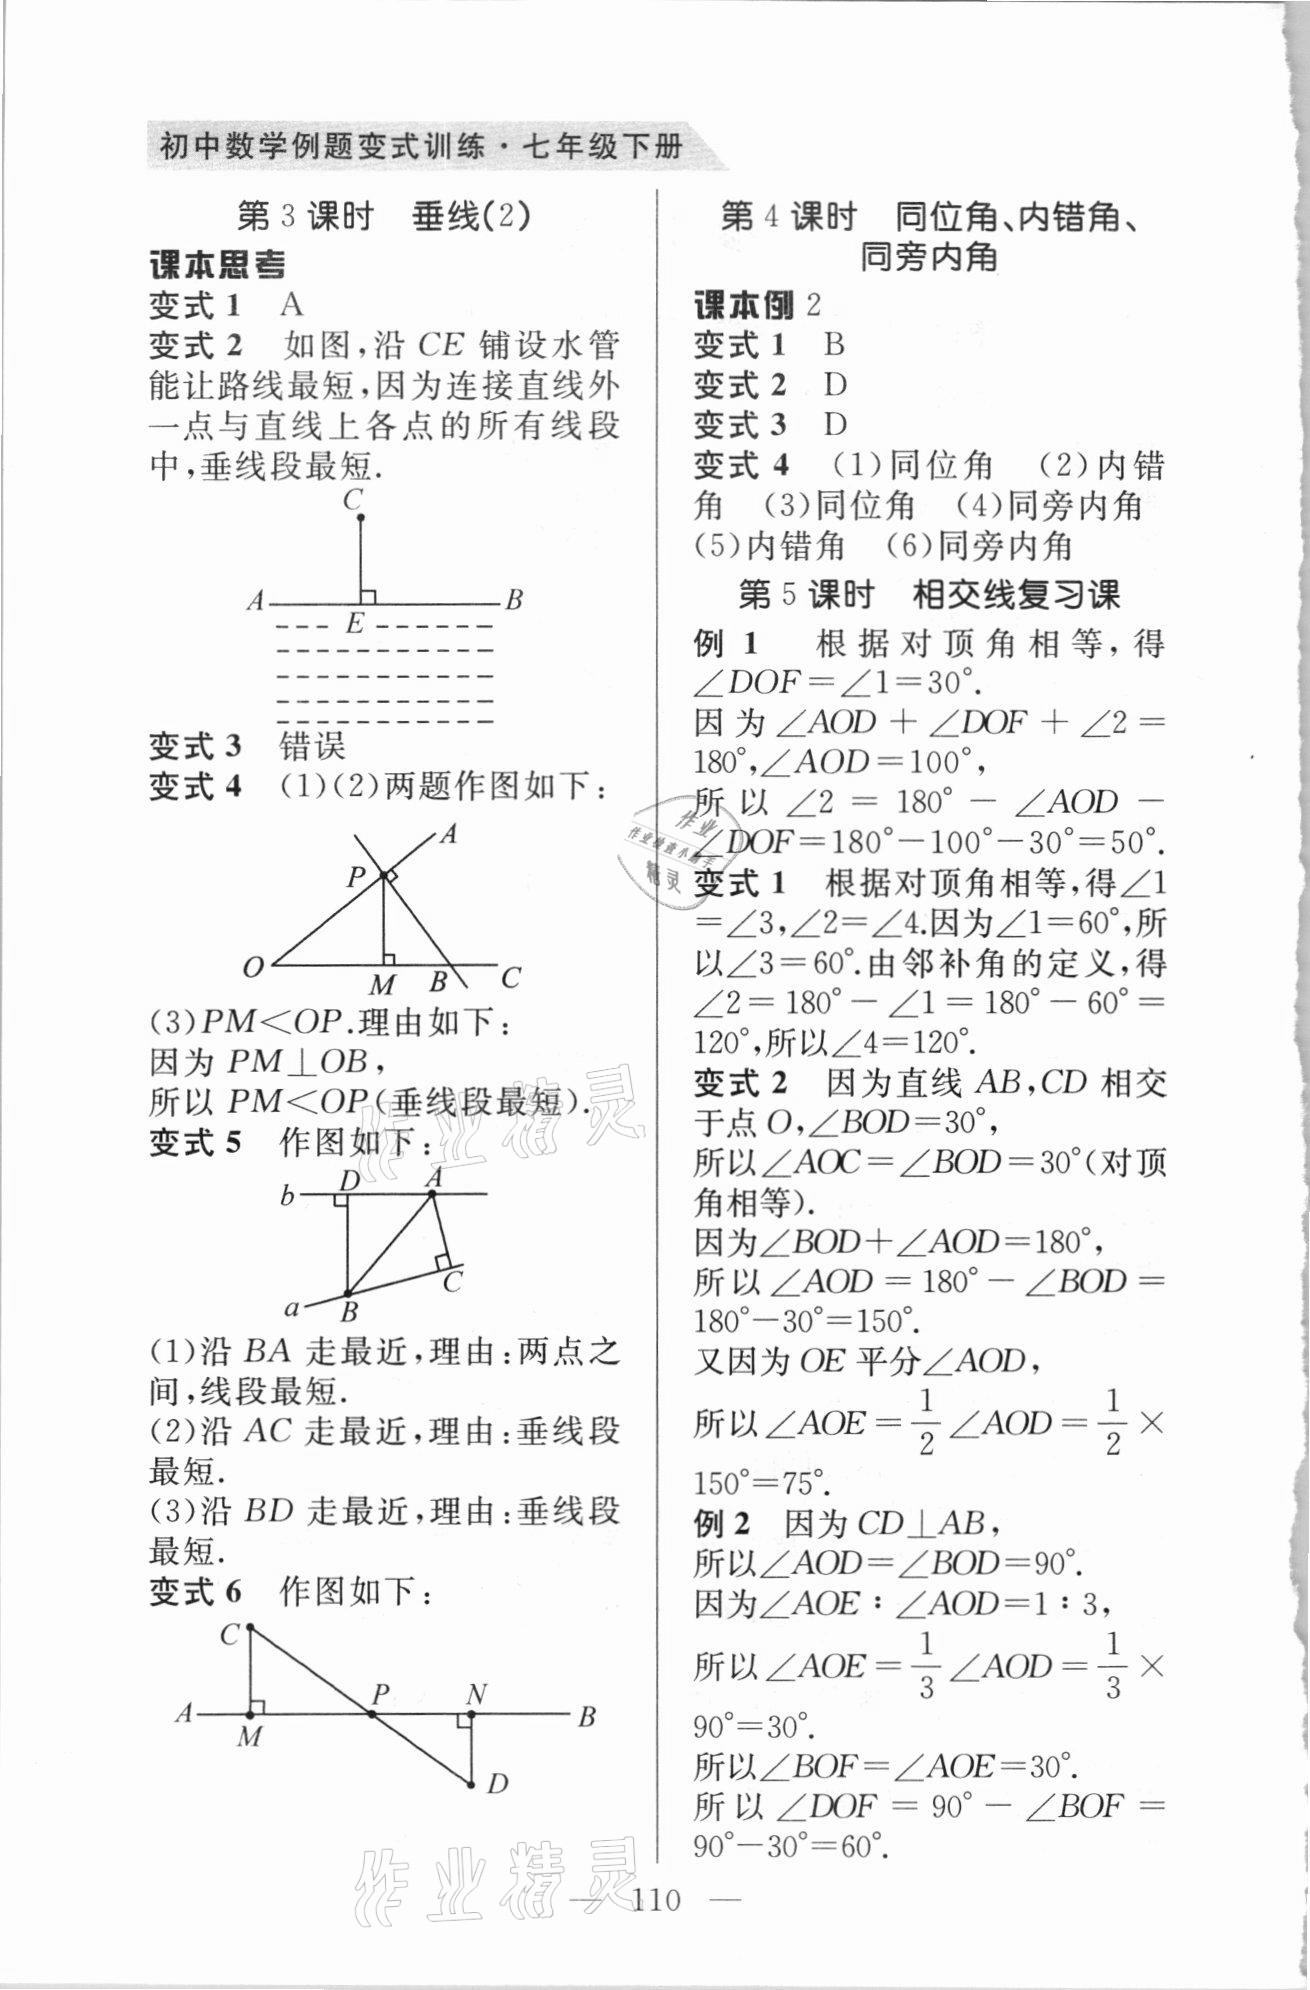 初中数学例题变式训练·七年级下册
第3课时　垂线(2)
课本思考
变式1　A
变式2　如图,沿CE铺设水管
能让路线最短,因为连接直线外
一点与直线上各点的所有线段
中,垂线段最短.
C
A
B
E
变式3　错误
变式4　(1)(2)两题作图如下:
A
P
O
M
B
C
(3)PM<OP.理由如下:
因为PM⊥OB,
所以PM<OP(垂线段最短).
变式5　作图如下:
b
D
A
C
a
B
(1)沿BA走最近,理由:两点之
间,线段最短.
(2)沿AC走最近,理由:垂线段
最短.
(3)沿BD走最近,理由:垂线段
最短.
变式6　作图如下:
C
P
N
A
B
M
D
第4课时　同位角、内错角、
同旁内角
课本例2
变式1　B
变式2　D
变式3　D
变式4　(1)同位角　(2)内错
角　(3)同位角　(4)同旁内角
(5)内错角　(6)同旁内角
第5课时　相交线复习课
例1　根据对顶角相等,得
∠DOF=∠1=30°.
因为∠AOD+∠DOF+∠2=
180°,∠AOD=100°,
所以∠2=180°-∠AOD-
∠DOF=180°-100°-30°=50°.
变式1　根据对顶角相等,得∠1
=∠3,∠2=∠4.因为∠1=60°,所
以∠3=60°.由邻补角的定义,得
∠2=180°-∠1=180°-60°=
120°,所以∠4=120°.
变式2　因为直线AB,CD相交
于点O,∠BOD=30°,
所以∠AOC=∠BOD=30°(对顶
角相等).
因为∠BOD+∠AOD=180°,
所以∠AOD=180°-∠BOD=
180°-30°=150°.
又因为OE平分∠AOD,
所以∠AOE=1/2∠AOD=1/2×
150°=75°.
例2　因为CD⊥AB,
所以∠AOD=∠BOD=90°.
因为∠AOE:∠AOD=1:3,
所以∠AOE=1/3∠AOD=1/3×
90°=30°.
所以∠BOF=∠AOE=30°.
所以∠DOF=90°-∠BOF=
90°-30°=60°.
— 110 —
作业
作业检查小助手
精灵
作业精灵
作业精灵